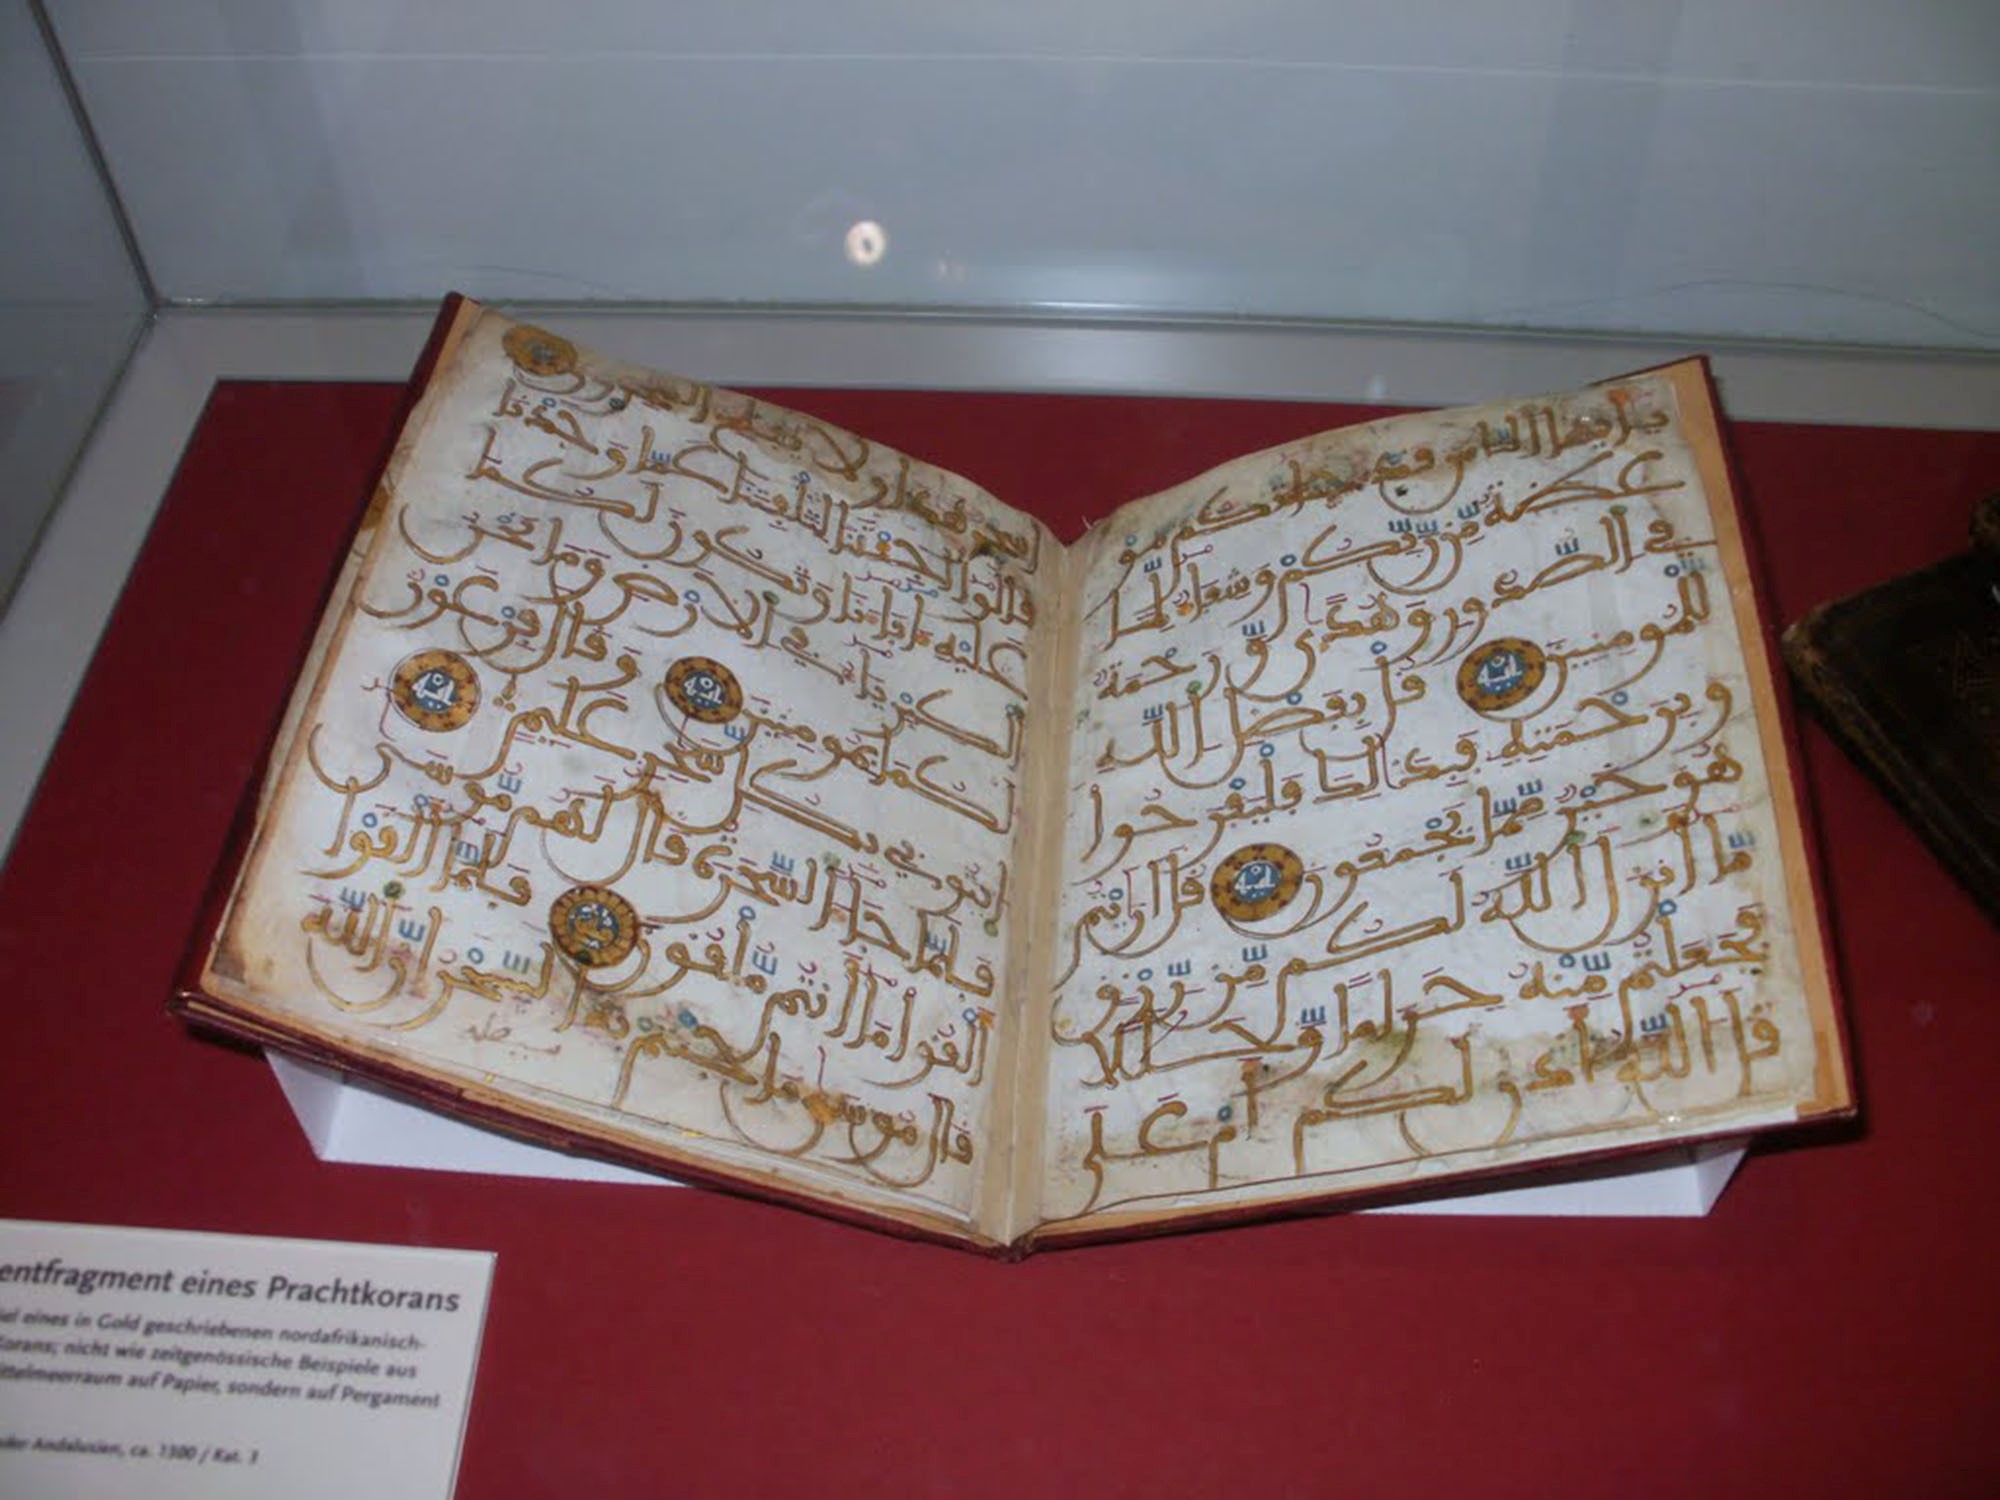 يا أيها الناس قد جاءتكم مو
عظة من ربكم وشفاء لما
في الصدور وهدى ورحمة
للمومنين اية قل بفضل الله
وبرحمته فبذلك فليفرحوا
هو خير مما يجمعون اية قل ارايتم
ما أنزل الله لكم من رزق
فجعلتم منه حراما وحلالا
قل الله أذن لكم أم على
أسحر هذا ولا يفلح السحرون
قالوا أجئتنا لتلفتنا عما وجدنا
عليه اباءنا وتكون لكما
الكبرياء في الارض وما نحن
لكما بمومنين اية وقال فرعون
ايتوني بكل سحر عليم اية
فلما جاء السحرة قال لهم موسى
ألقوا ما أنتم ملقون فلما ألقوا
قال موسى ما جئتم به السحر إن الله
entfragment eines Prachtkorans
iel eines in Gold geschriebenen nordafrikanisch-
Korans; nicht wie zeitgenössische Beispiele aus
ittelmeerraum auf Papier, sondern auf Pergament
oder Andalusien, ca. 1300 / Kat. 3